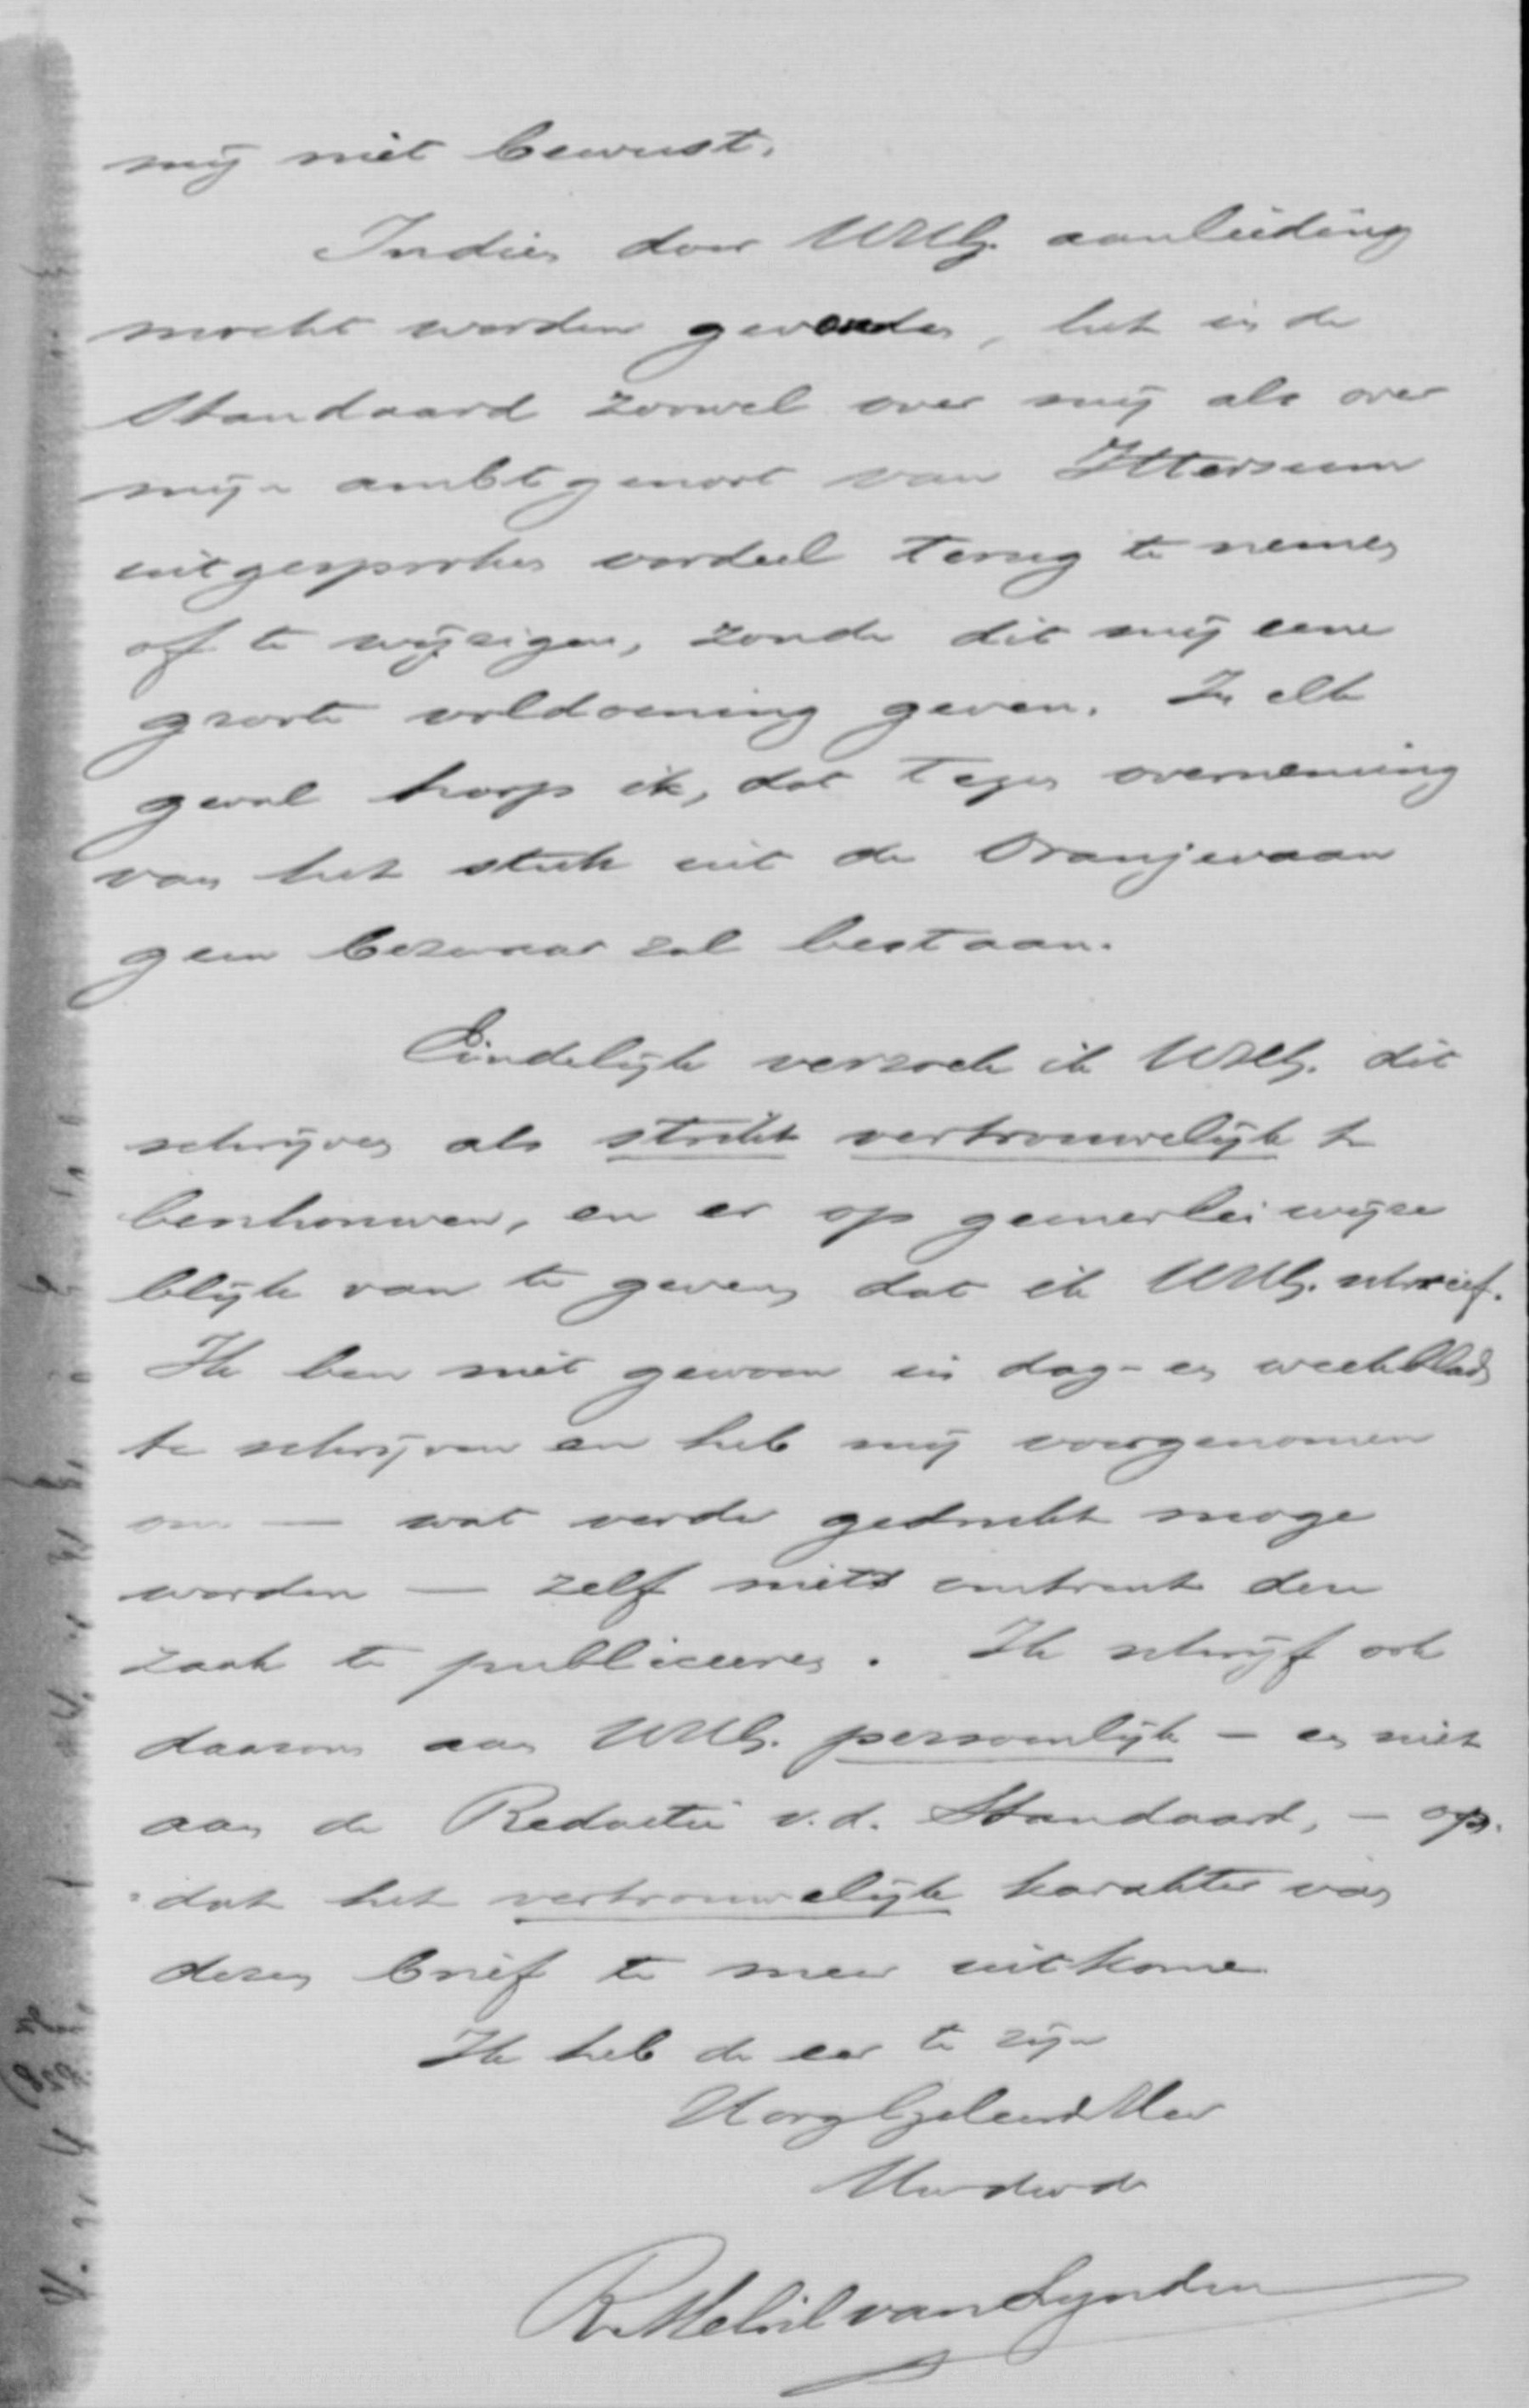 mij niet bewust.
Indien door UHG. aanleiding
mocht worden gevonden, het in de
Standaard zoowel over mij als over
mijn ambtgenoot van Ittersum
uitgesproken oordeel terug te nemen
of te wijzigen, zoude dit mij eene
groote voldoening geven. In elk
geval hoop ik, dat tegen overneming
van het stuk uit de Oranjevaan
geen bezwaar zal bestaan.
Eindelijk verzoek ik UHG. dit
schrijven als strikt vertrouwelijk te
beschouwen, en er op geenerlei wijze
blijk van te geven dat ik UHG. schreef.
Ik ben niet gewoon in dag- en weekblad
te schrijven en heb mij voorgenomen
om — wat verder gedrukt moge
worden — zelf niets omtrent deze
zaak te publiceeren. Ik schrijf ook
daarom aan UHG. persoonlijk - en niet
aan de Redactie v.d. Standaard, - op-
dat het vertrouwelijk karakter van
dezen brief te meer uitkome
Ik heb de eer te zijn
HoogGeleerde Heer
Uw dw dr
R. Melvil van Lynden